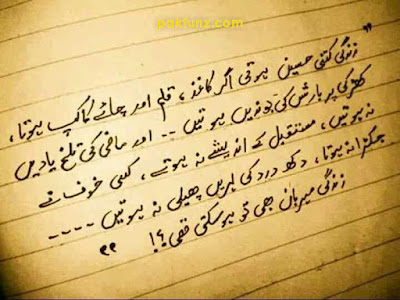 pakfunz.com
"زندگی کتنی حسین ہوتی اگر کاغذ، قلم اور چائے کا کپ ہوتا،
کھڑکی پر بارش کی بوندیں ہوتیں -- اور ماضی کی تلخ یادیں
نہ ہوتیں، مستقبل کے اندیشے نہ ہوتے، کسی خوف نے
جکڑا نہ ہوتا، دکھ درد کی لہریں پھیلی نہ ہوتیں ----
زندگی مہربان بھی تو ہو سکتی تھی؟! "